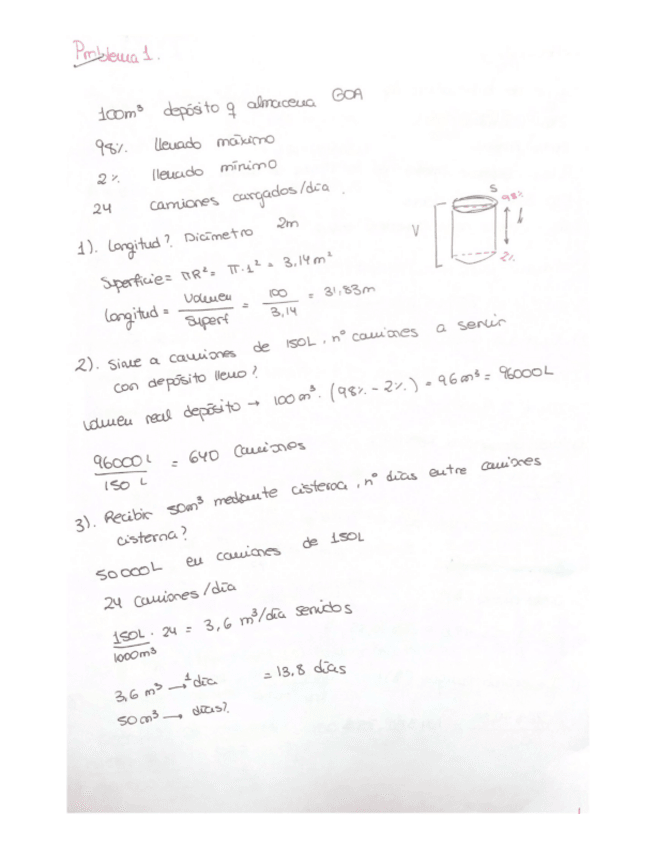 Problema 1.
100m³ depósito q almacena GOA
98% llenado máximo
2% llenado mínimo
24 camiones cargados/día.
1). Longitud? Diámetro 2m
Superficie = πR² = π·1² = 3,14 m²
Longitud = Volumen/Superf = 100/3,14 = 31,83m
S
98%
V
h
2%
2). Sirve a camiones de 150L, nº camiones a servir
con depósito lleno?
Volumen real depósito → 100m³·(98% - 2%) = 96m³ = 96000L
96000L/150 L = 640 Camiones
3). Recibir 50m³ mediante cisterna, nº días entre camiones
cisterna?
50000L en camiones de 150L
24 Camiones/día
150L/1000m³ · 24 = 3,6 m³/día servidos
3,6 m³ → 1 día = 13,8 días
50m³ → días?